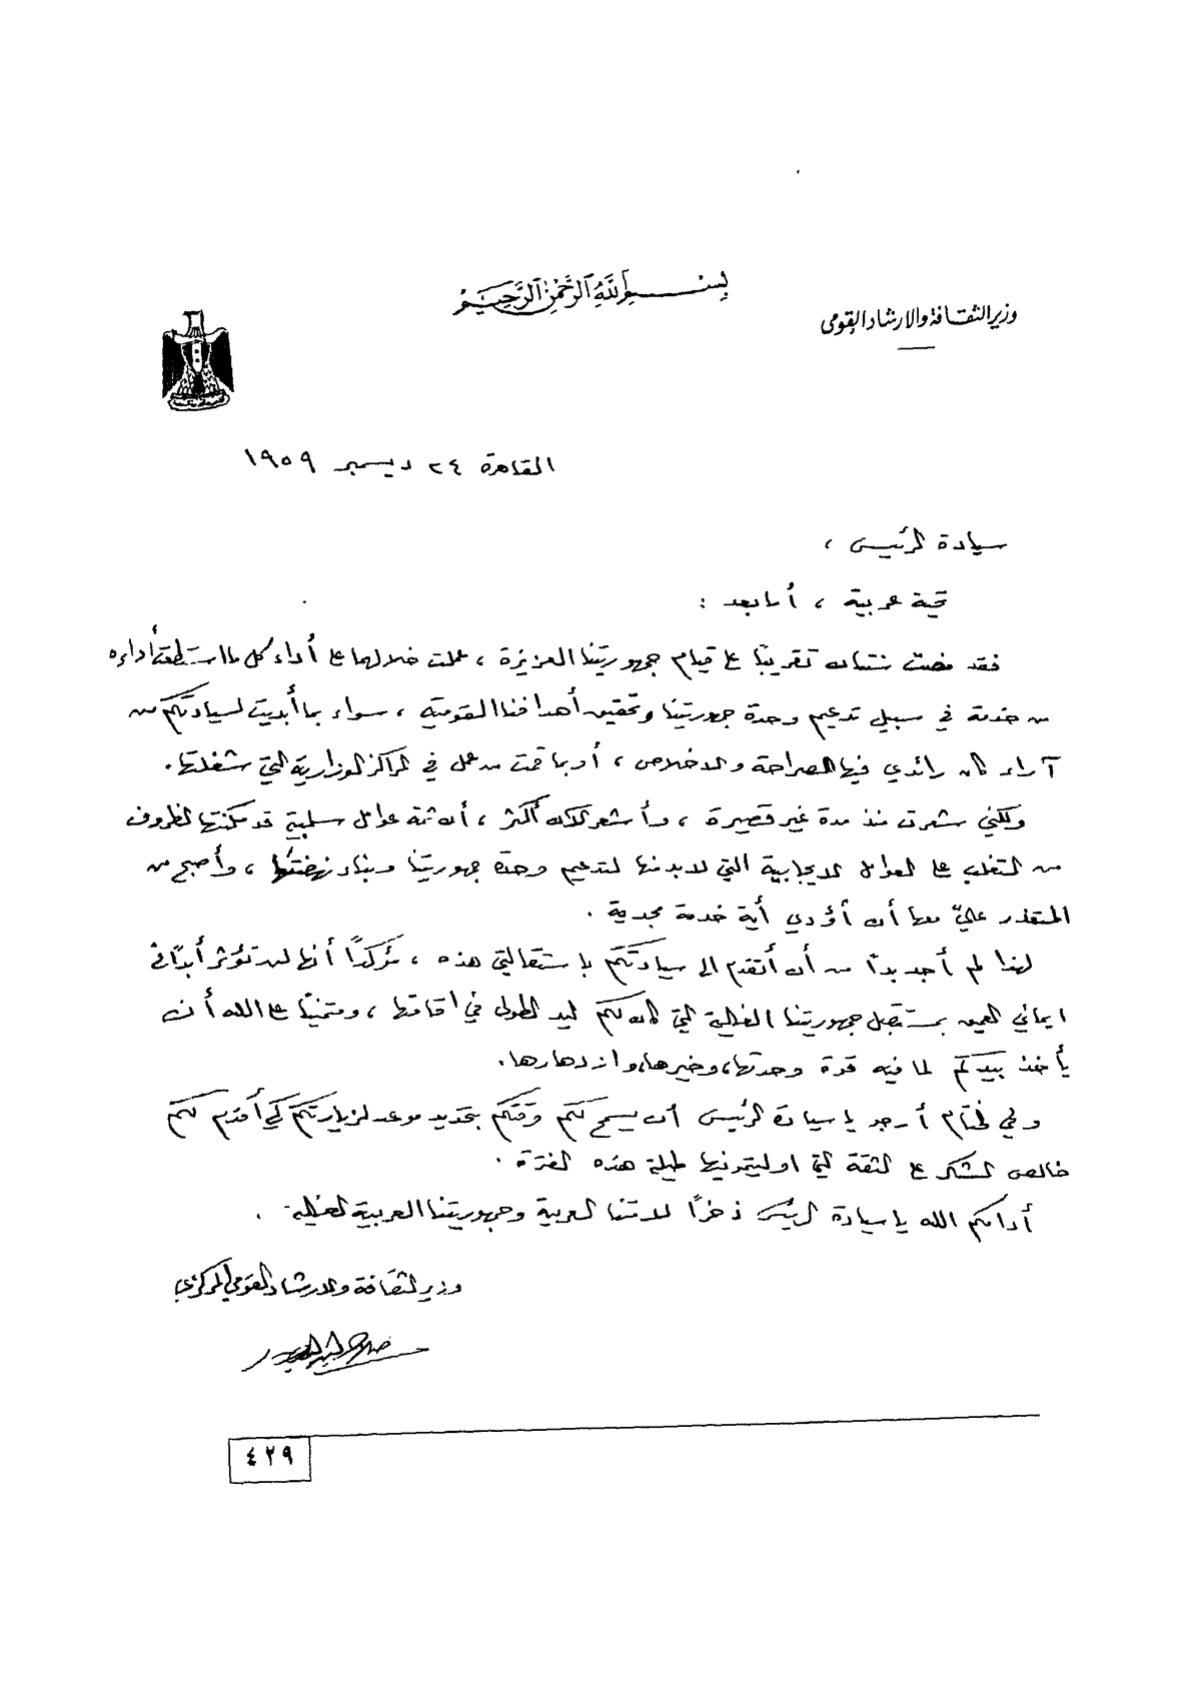 بسم الله الرحمن الرحيم
وزير الثقافة والارشاد القومى
القاهرة ٢٤ ديسمبر ١٩٥٩
سيادة الرئيس ،
تحية عربية ، أما بعد :
فقد مضت سنتان تقريبًا على قيام جمهوريتنا العزيزة ، عملت خلالها على أداء كل ما استطعت أداءه
من خدمة في سبيل تدعيم وحدة جمهوريتنا وتحقيق أهدافنا القومية ، سواء بما أبديت لسيادتكم من
آراء كان رائدي فيها الصراحة والاخلاص ، أو بما قمت من عمل في المراكز الوزارية التي شغلتها .
ولكني شعرت منذ مدة غير قصيرة ، وأشعر الآن أكثر ، أن ثمة عوامل سلبية قد مكنتها الظروف
من التغلب على العوامل الايجابية التي لا بد منها لتدعيم وحدة جمهوريتنا وبناء نهضتها ، وأصبح من
المتعذر عليّ معها أن أؤدي أية خدمة مجدية .
لهذا لم أجد بدًا من أن أتقدم الى سيادتكم باستقالتي هذه ، مؤكدًا أنها لن تؤثر أبدًا في
ايماني العميق بمستقبل جمهوريتنا الغالية التي كان لكم اليد الطولى في اقامتها ، ومتمنيًا على الله أن
يأخذ بيدكم لما فيه قوة وحدتها، وخيرها، وازدهارها .
وفي الختام أرجو يا سيادة الرئيس أن يسمح لكم وقتكم بتحديد موعد لزيارتكم كي أقدم لكم
خالص الشكر على الثقة التي اوليتمونيها طيلة هذه الفترة .
أدامكم الله يا سيادة الرئيس ذخرًا لامتنا العربية وجمهوريتنا العربية الغالية .
وزير الثقافة والارشاد القومي المركزي
صلاح البيطار
٤٢٩